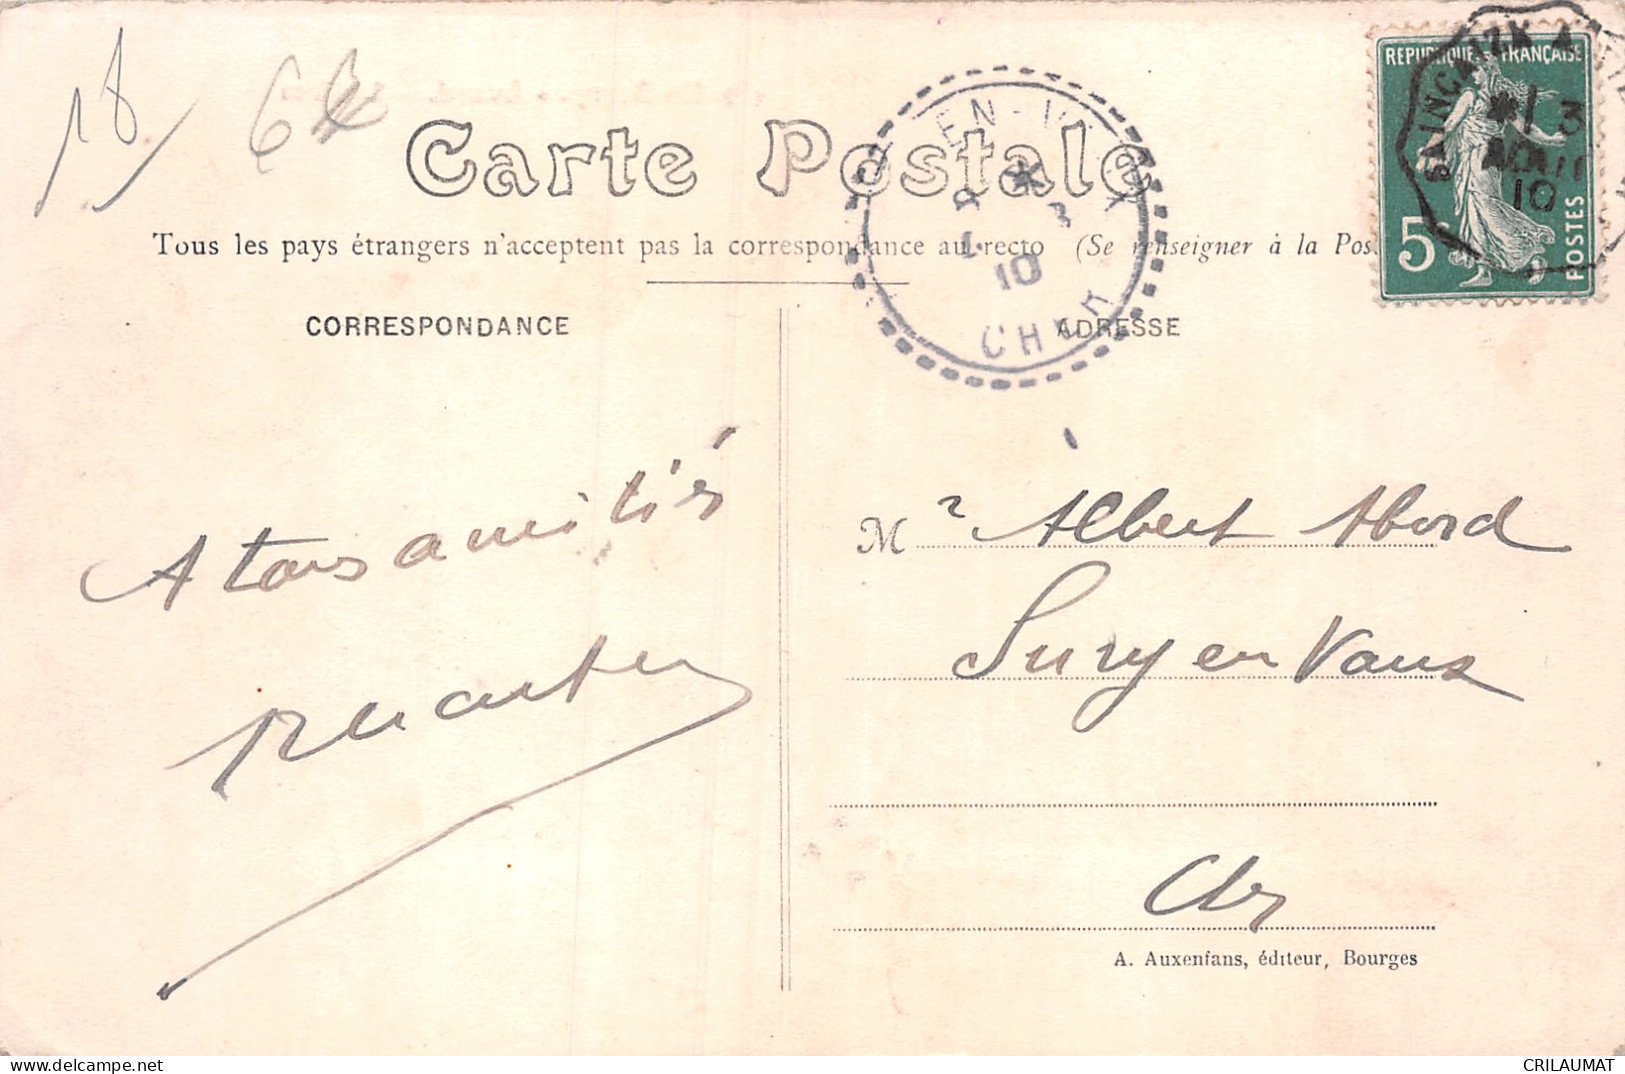 18
6
Carte Postale
Tous les pays étrangers n'acceptent pas la correspondance au recto (Se renseigner à la Pos
CORRESPONDANCE
ADRESSE
RÉPUBLIQUE FRANÇAISE
5c
POSTES
SAINCAIZE A
13
AOUT
10
EN-V
3
10
CHER
A tous amitiés
M r Albert Abord
Sury en Vaux
Cher
A. Auxenfans, éditeur, Bourges
CRILAUMAT